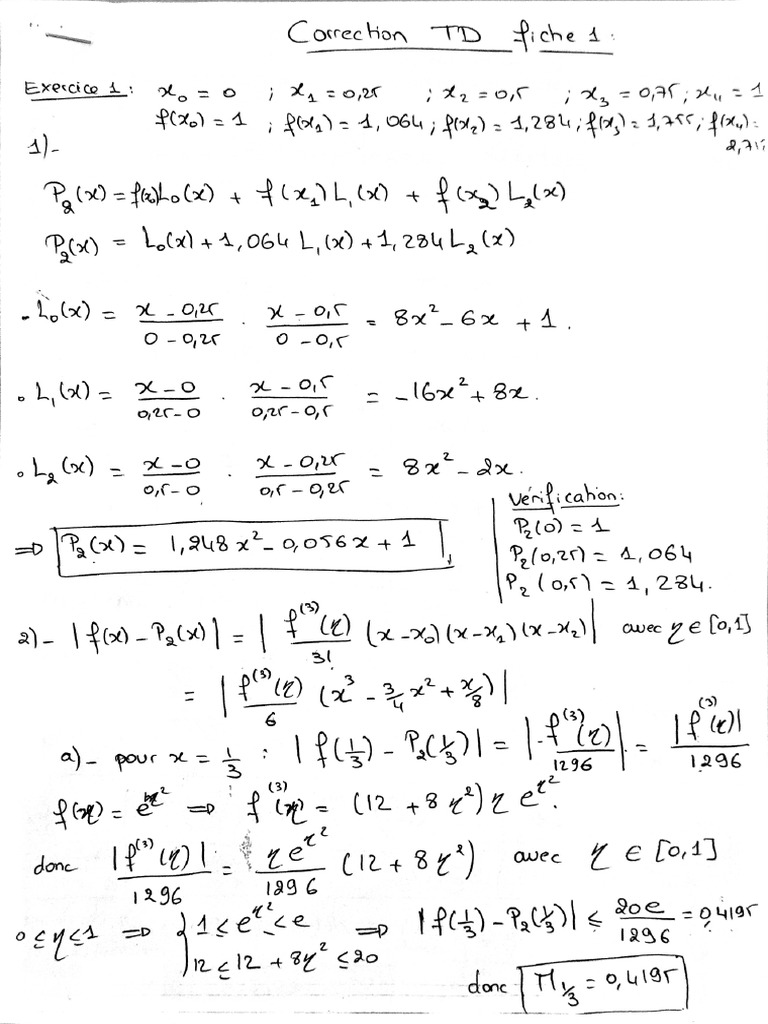 Correction TD fiche 1:
Exercice 1: x₀ = 0 ; x₁ = 0,25 ; x₂ = 0,5 ; x₃ = 0,75 ; x₄ = 1
f(x₀) = 1 ; f(x₁) = 1,064 ; f(x₂) = 1,284 ; f(x₃) = 1,755 ; f(x₄) =
1)- 2,71
P₂(x) = f(x₀)L₀(x) + f(x₁)L₁(x) + f(x₂)L₂(x)
P₂(x) = L₀(x) + 1,064 L₁(x) + 1,284 L₂(x)
- L₀(x) = (x - 0,25)/(0 - 0,25) . (x - 0,5)/(0 - 0,5) = 8x² - 6x + 1.
• L₁(x) = (x - 0)/(0,25 - 0) . (x - 0,5)/(0,25 - 0,5) = -16x² + 8x.
• L₂(x) = (x - 0)/(0,5 - 0) . (x - 0,25)/(0,5 - 0,25) = 8x² - 2x.
⇒ P₂(x) = 1,248x² - 0,056x + 1
Vérification:
P₂(0) = 1
P₂(0,25) = 1,064
P₂(0,5) = 1,284.
2)- |f(x) - P₂(x)| = |f⁽³⁾(η)/3! (x - x₀)(x - x₁)(x - x₂)| avec η ∈ [0,1]
= |f⁽³⁾(η)/6 (x³ - 3/4 x² + x/8)|
a)- pour x = 1/3 : |f(1/3) - P₂(1/3)| = |- f⁽³⁾(η)/1296| = |f⁽³⁾(η)|/1296
f(η) = e^η² ⇒ f⁽³⁾(η) = (12 + 8η²) η e^η².
donc |f⁽³⁾(η)|/1296 = η e^η²/1296 (12 + 8η²) avec η ∈ [0,1]
0 ≤ η ≤ 1 ⇒ { 1 ≤ e^η² ≤ e ⇒ |f(1/3) - P₂(1/3)| ≤ 20e/1296 = 0,4195
12 ≤ 12 + 8η² ≤ 20
donc M_1/3 = 0,4195